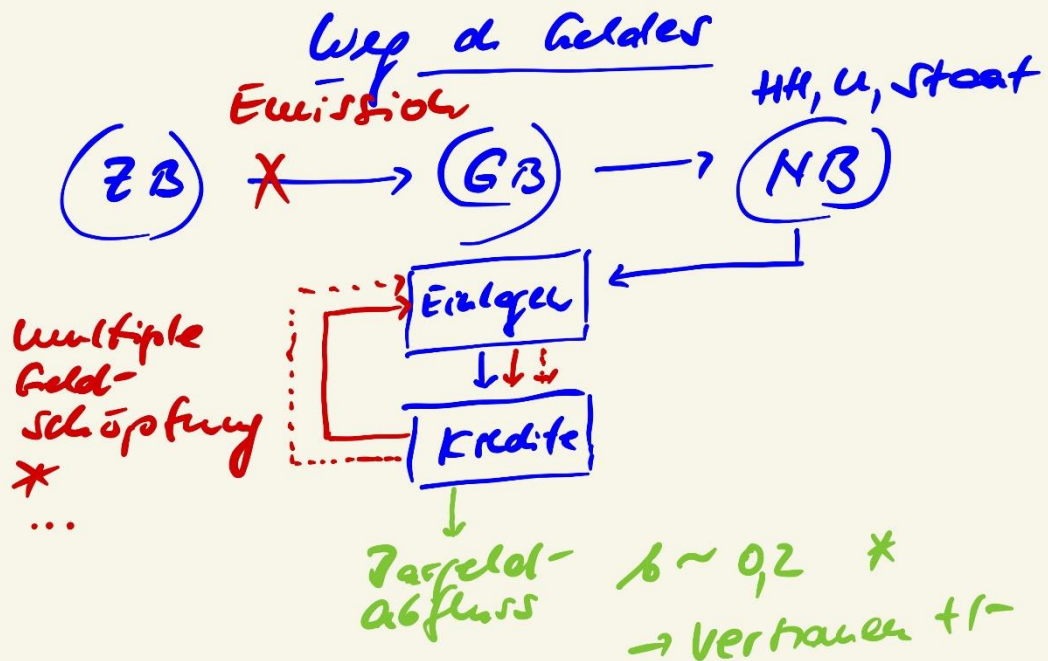 Weg d. Geldes
Emission
HH, U, Staat
ZB
GB
NB
Einlagen
multiple
Geld-
schöpfung
*
...
Kredite
Bargeld-
abfluss
b ~ 0,2 *
→ Vertrauen +/-